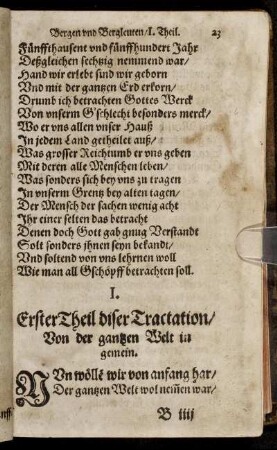 Bergen vnd Bergleuten/ I. Theil. 23
Fünffthausent vnd fünffhundert Jahr
Deßgleichen sechtzig nemmend war/
Hand wir erlebt sind wir geborn
Vnd mit der gantzen Erd erkorn/
Drumb ich betrachten Gottes Werck
Von vnserm G'schlecht besonders merck/
Wo er vns allen vnser Hauß
In jedem Land getheilet auß/
Was grosser Reichthumb er vns geben
Mit deren alle Menschen leben/
Was sonders sich bey vns zu tragen
In vnserm Grentz bey alten tagen/
Der Mensch der sachen wenig acht
Ihr einer selten das betracht
Denen doch Gott gab gnug Verstandt
Solt sonders jhnen seyn bekandt/
Vnd soltend von vns lehrnen woll
Wie man all Gschöpff betrachten soll.
I.
Erster Theil diser Tractation/
Von der gantzen Welt in
gemein.
NVn wöllē wir von anfang har/
Der gantzen Welt wol nem̄en war/
B iiij